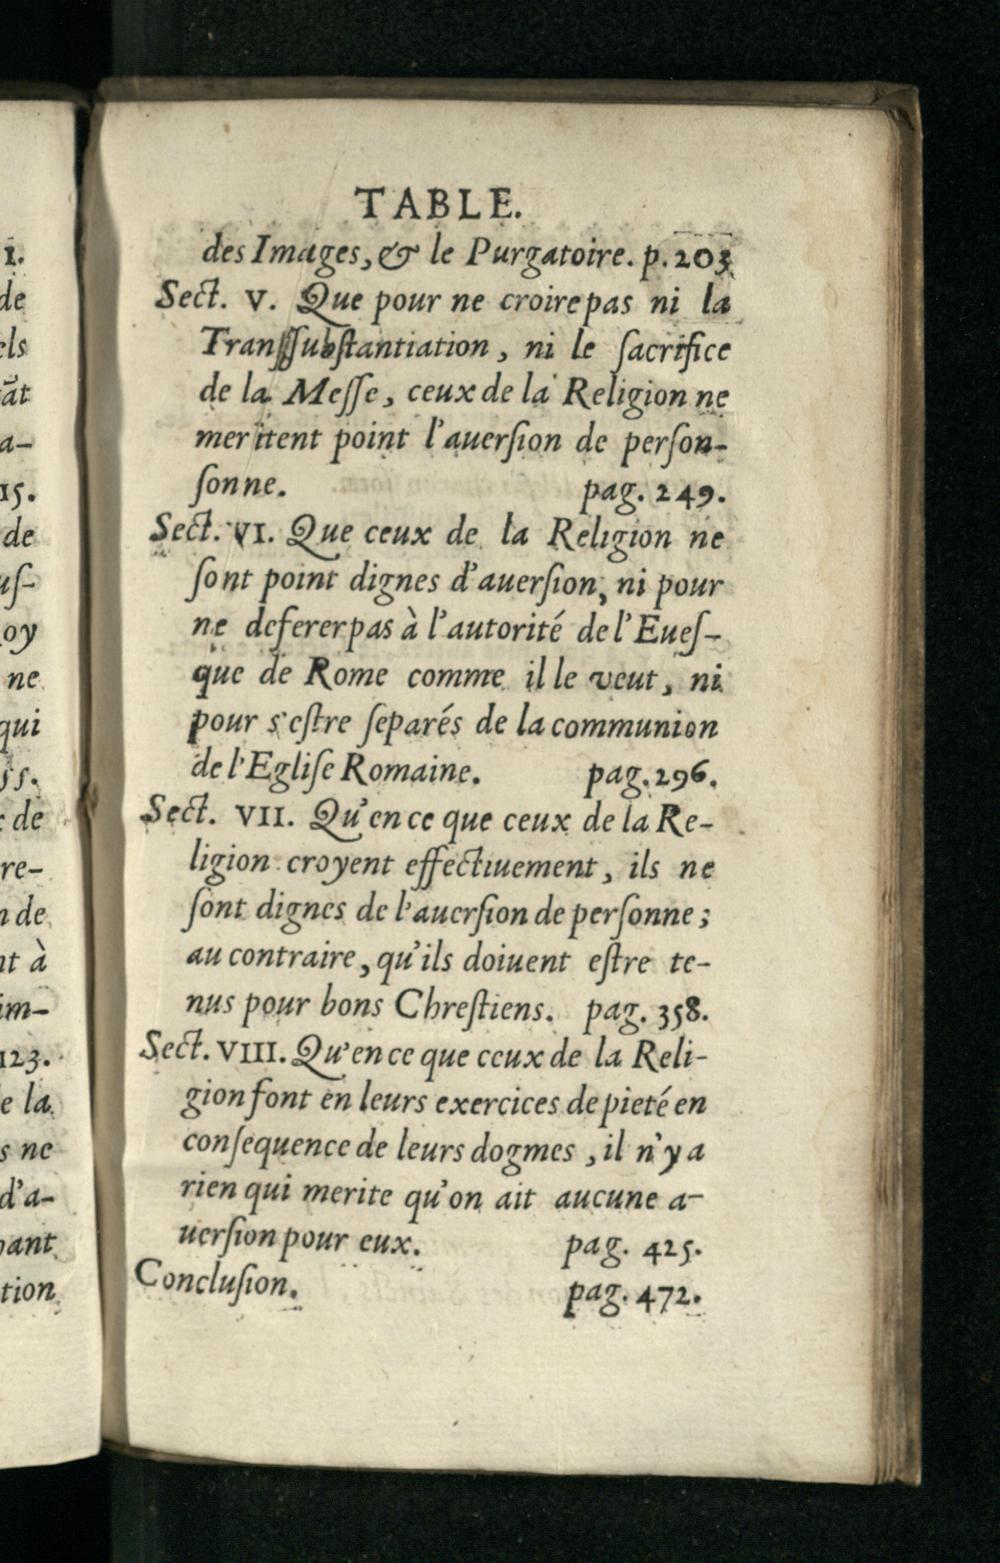 TABLE.
des Images, & le Purgatoire. p. 203
Sect. V. Que pour ne croire pas ni la
Tranſſubſtantiation, ni le ſacrifice
de la Meſſe, ceux de la Religion ne
meritent point l'auerſion de perſon-
ſonne. pag. 249.
Sect. VI. Que ceux de la Religion ne
ſont point dignes d'auerſion, ni pour
ne deferer pas à l'autorité de l'Eueſ-
que de Rome comme il le veut, ni
pour s'eſtre ſeparés de la communion
de l'Egliſe Romaine. pag. 296.
Sect. VII. Qu'en ce que ceux de la Re-
ligion croyent effectiuement, ils ne
ſont dignes de l'auerſion de perſonne;
au contraire, qu'ils doiuent eſtre te-
nus pour bons Chreſtiens. pag. 358.
Sect. VIII. Qu'en ce que ceux de la Reli-
gion font en leurs exercices de pieté en
conſequence de leurs dogmes, il n'y a
rien qui merite qu'on ait aucune a-
uerſion pour eux. pag. 425.
Concluſion. pag. 472.